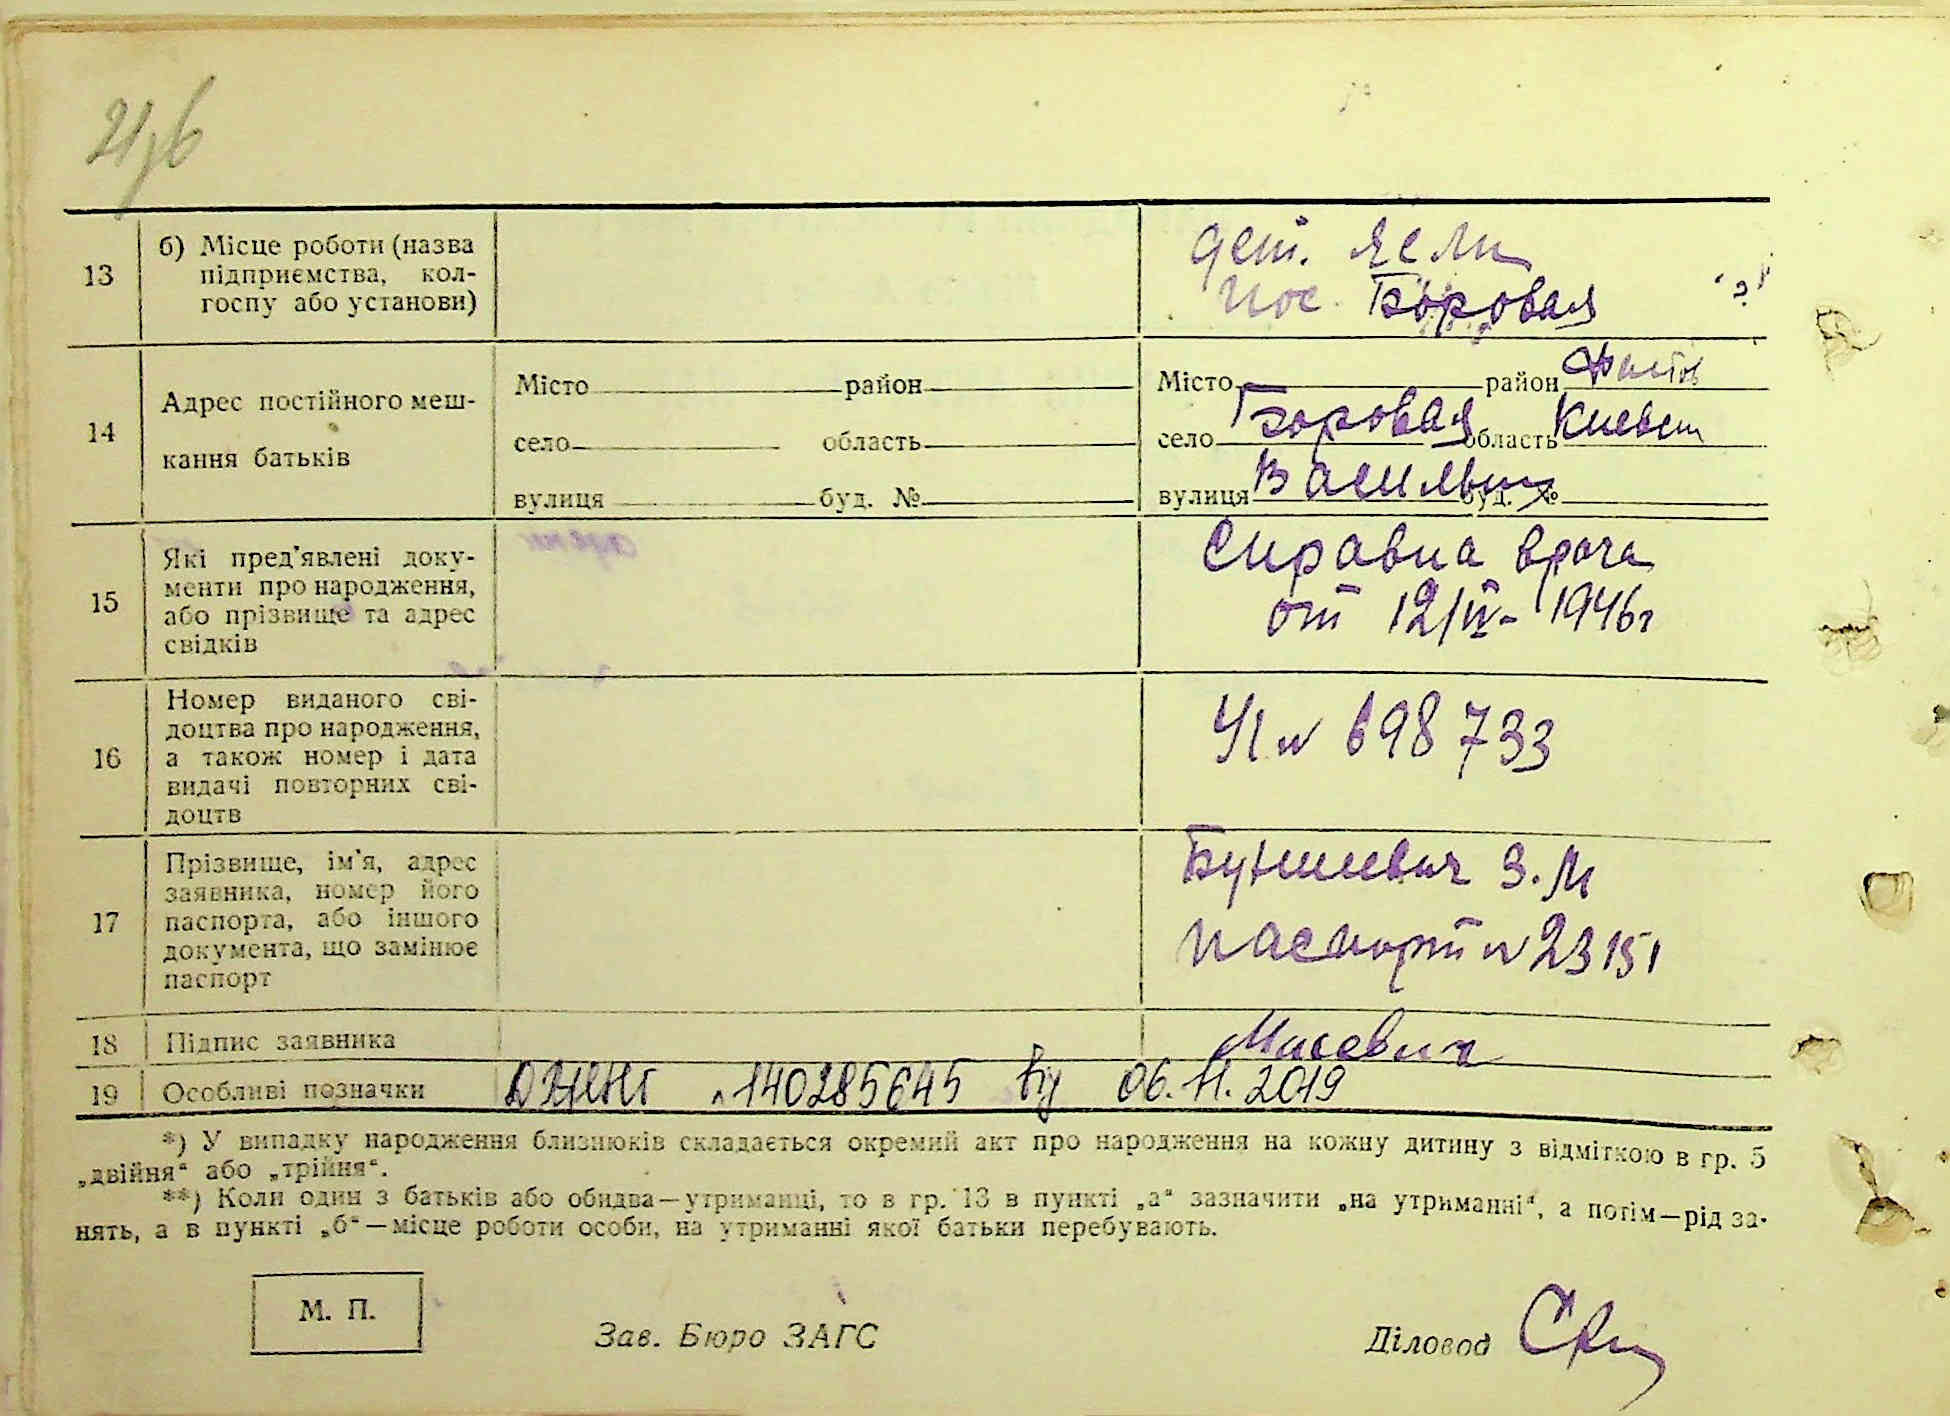 13
б) Місце роботи (назва
підприємства, кол-
госпу або установи)
дет. ясли
пос. Боровая
14
Адрес постійного меш-
кання батьків
Місто район
село область
вулиця буд. №
Місто район Фастов
село Боровая область Киевск
вулиця буд. №
15
Які пред'явлені доку-
менти про народження,
або прізвище та адрес
свідків
Справка врача
от 12/IV - 1946 г
16
Номер виданого сві-
доцтва про народження,
а також номер і дата
видачі повторних сві-
доцтв
698733
17
Прізвище, ім'я, адрес
заявника, номер його
паспорта, або іншого
документа, що замінює
паспорт
З. М
паспорт № 23151
18
Підпис заявника
19
Особливі позначки
140285645 від 06.11.2019
*) У випадку народження близнюків складається окремий акт про народження на кожну дитину з відміткою в гр. 5
„двійня“ або „трійня“.
**) Коли один з батьків або обидва—утриманці, то в гр. 13 в пункті „а“ зазначити „на утриманні“, а потім—рід за-
нять, а в пункті „б“—місце роботи особи, на утриманні якої батьки перебувають.
М. П.
Зав. Бюро ЗАГС
Діловод